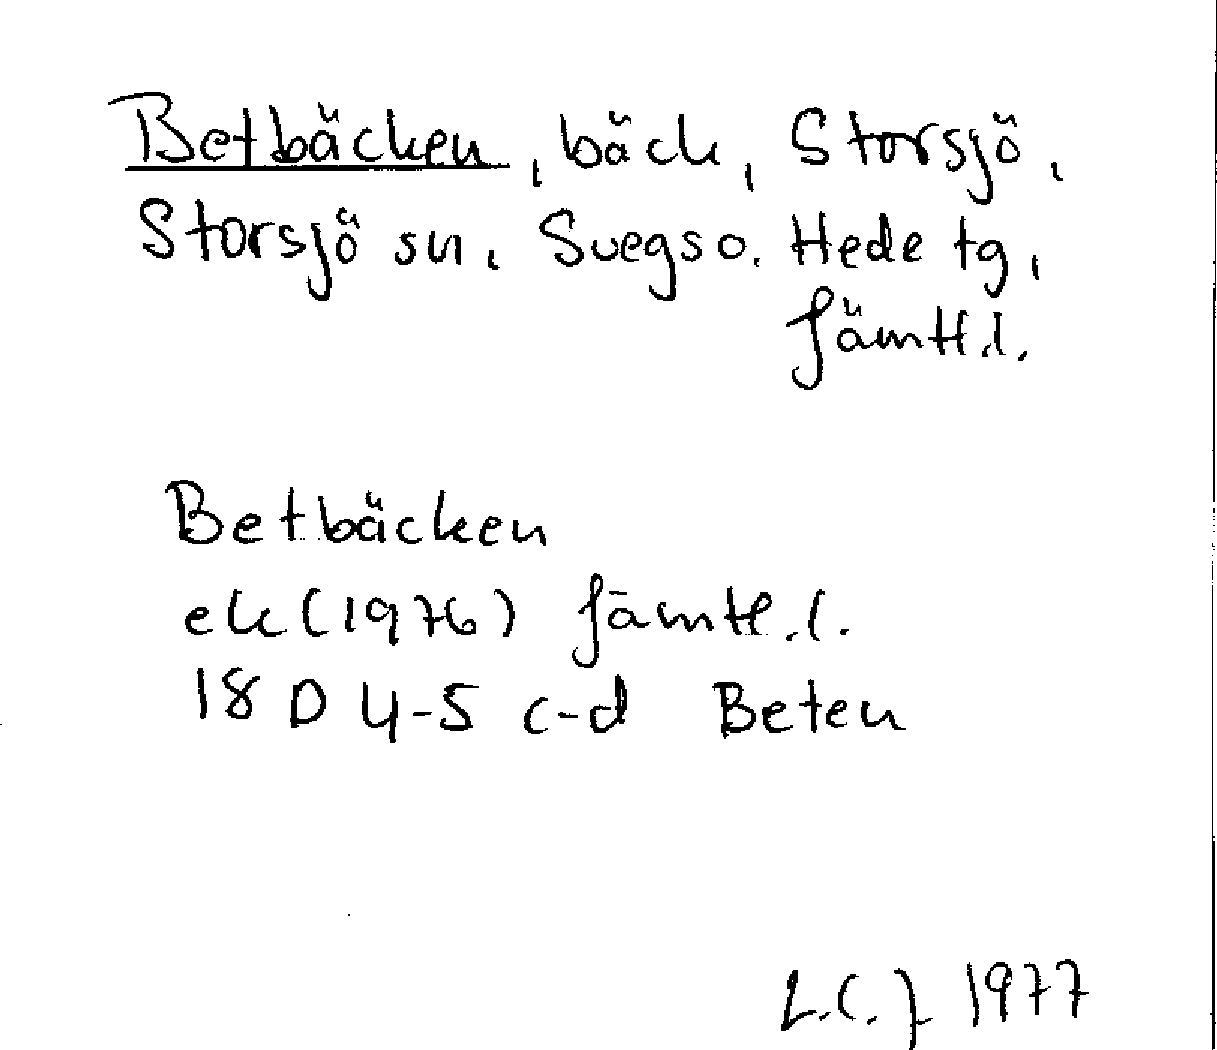 Betbäcken, bäck, Storsjö,
Storsjö sn, Svegs o. Hede tg,
Jämtl.l.
Betbäcken
ek (1976) Jämtl.l.
18 D 4-5 c-d Beten
1977